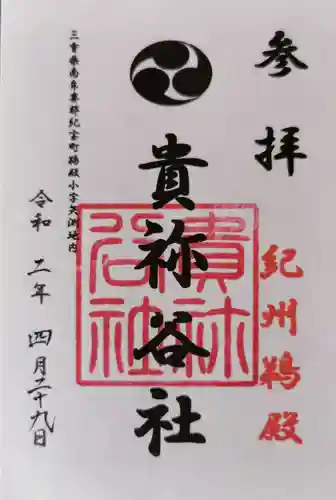 参拝
紀州鵜殿
貴祢谷社
貴祢谷社
三重県南牟婁郡紀宝町鵜殿小字矢渕地内
令和二年四月二十九日